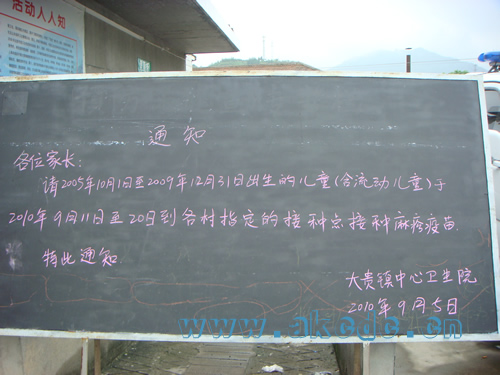 活动人人知
通知
各位家长:
请2005年10月1日至2009年12月31日出生的儿童(含流动儿童)于
2010年9月11日至20日到各村指定的接种点接种麻疹疫苗.
特此通知
大贵镇中心卫生院
2010年9月5日
www.akcdc.cn